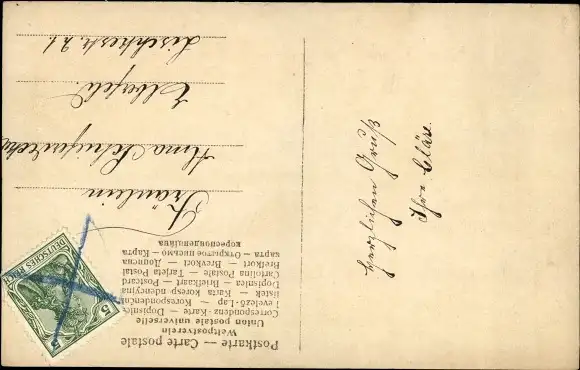 Postkarte — Carte postale
Weltpostverein
Union postale universelle
Correspondenz-Karte — Dopisnice
Levelező-Lap — Korespondenční
lístek — Karta koresp ndencyjna
Dopisnica — Briefkaart — Postcard
Cartolina Postale — Tarjeta Postal
Brefkort — Brevkort — Дописна
карта — Открытое письмо — Карта
кореспонденцiйна
Fräulein
Anna
Elberfeld.
21.
herzlichen Gruß
Ihre Cläre.
DEUTSCHES REICH
5 5